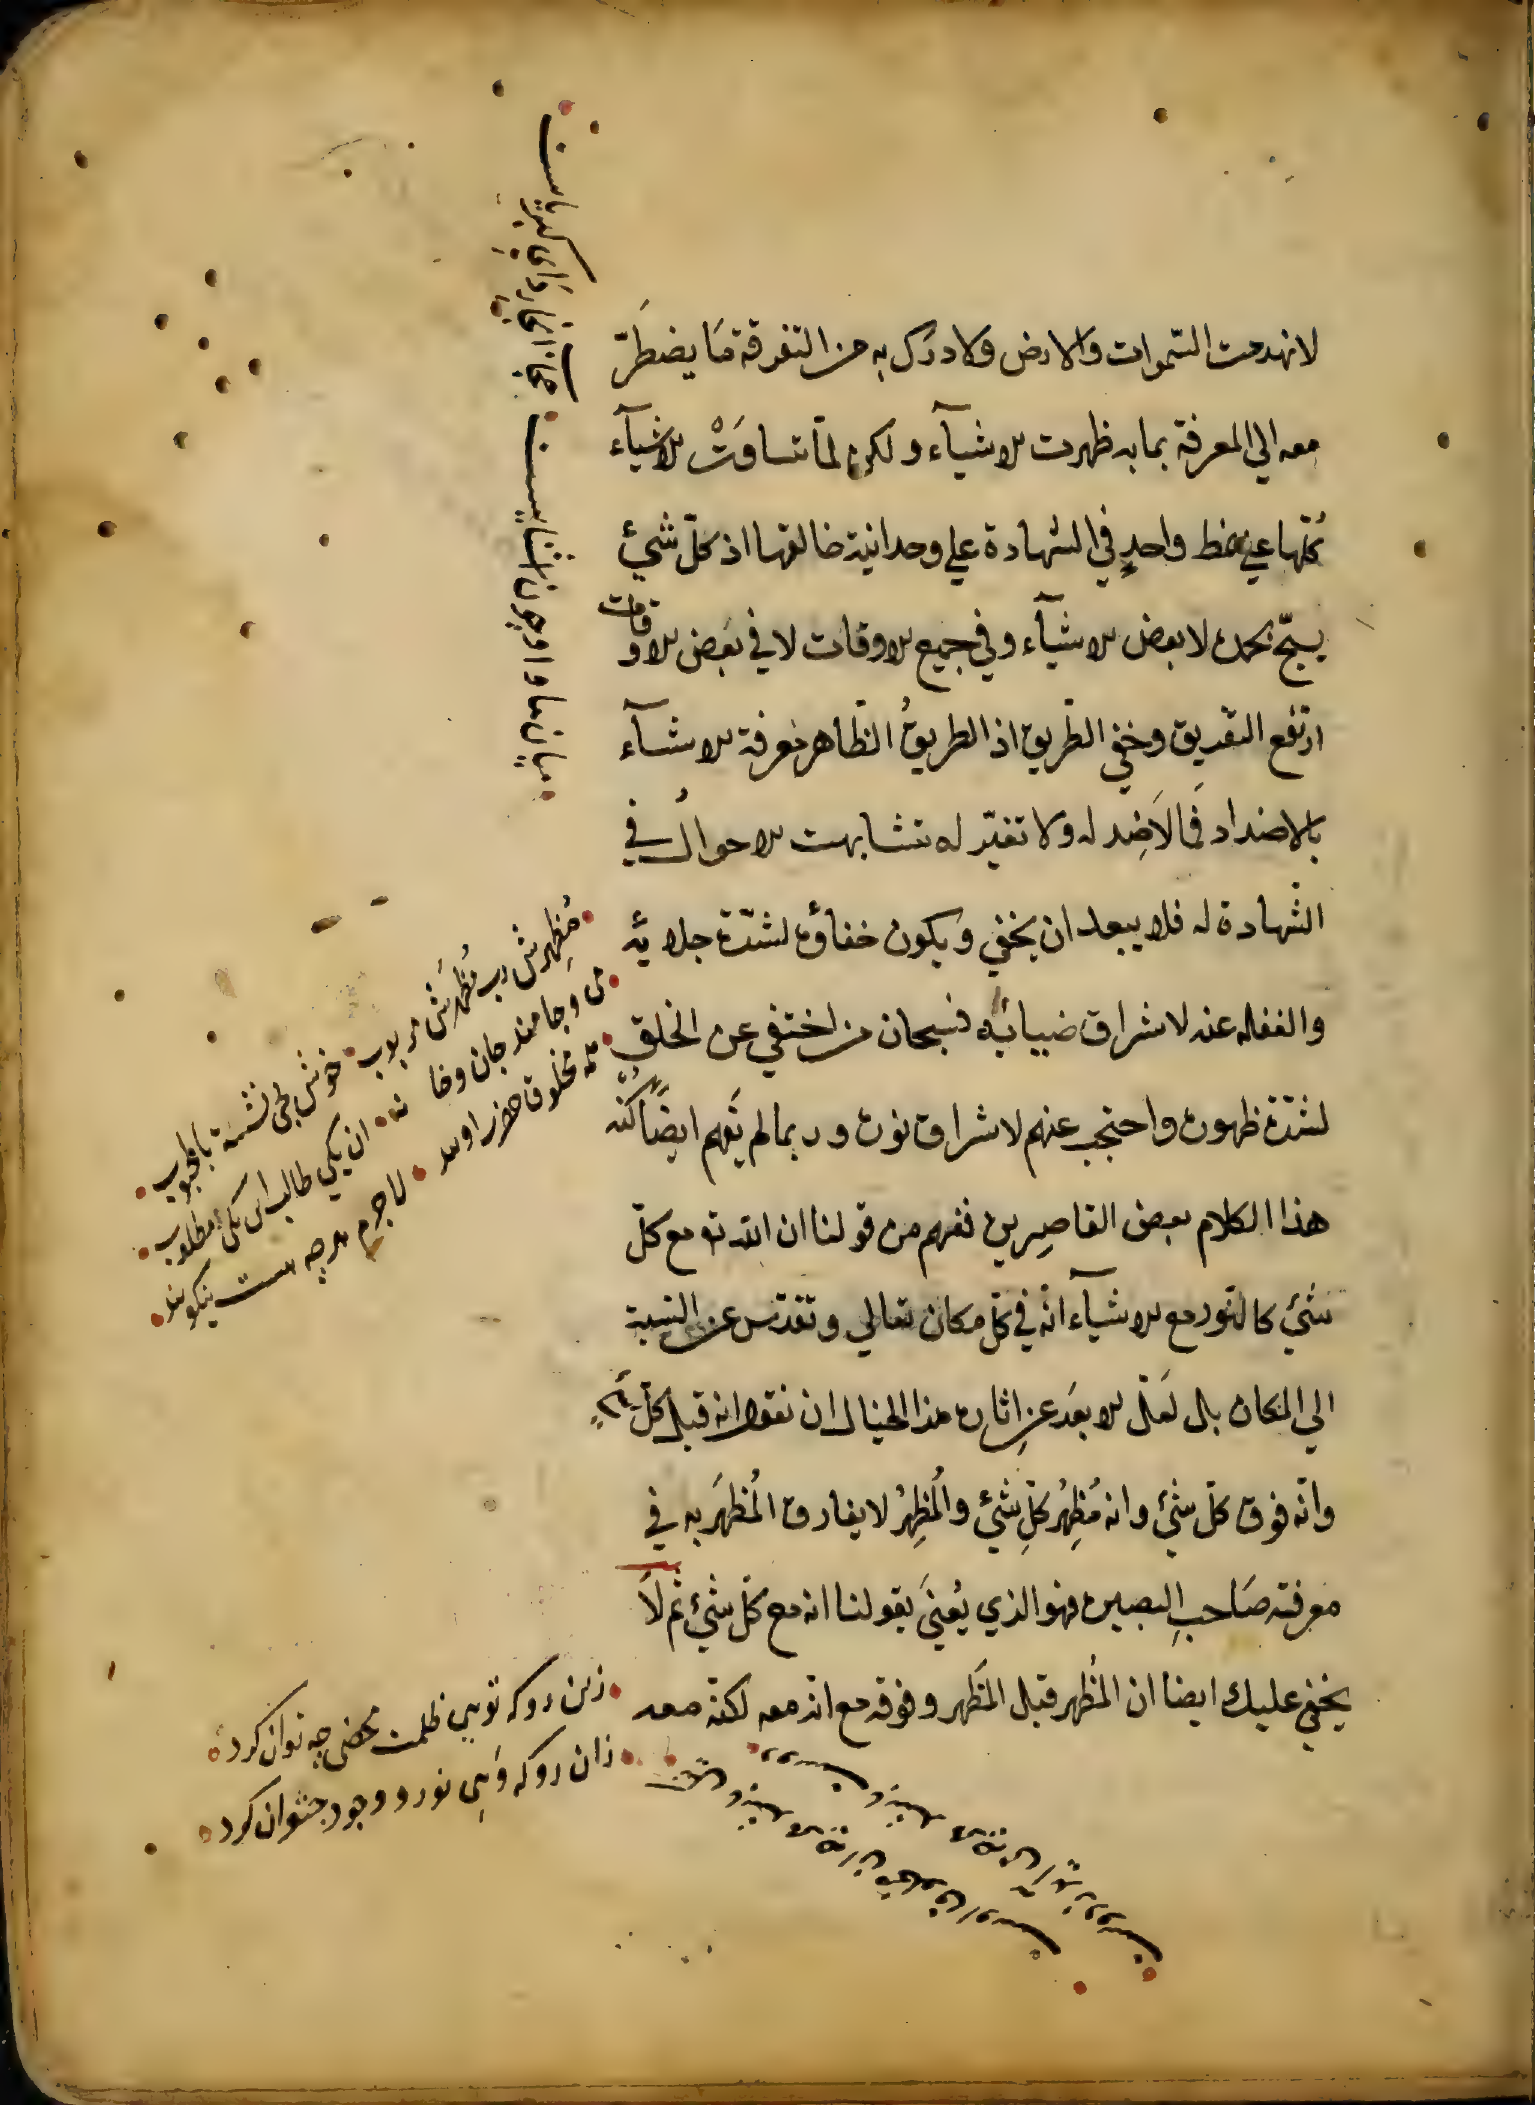 لانهدمت السّموات والارض ولادرك به من التفرقة مَا يضطَرّ
معه الي المعرفة بما به ظهرت الاشيآء ولكن لمّا تساوَتْ الاشيآء
كلّها علي نمط واحدٍ في الشهادة علي وحدانية خالقها اذ كلّ شيئ
يسبّح بحمده لا بعض الاشيآء وفي جميع الاوقات لا في بَعض الاوقات
ارتفع التفريق وخفي الطّريق اذ الطريقُ الظّاهر معرفة الاشيآء
بالاضداد فما لا ضِد له ولا تغيّر له تتشابهت الاحوالُ في
الشّهادة له فلا يبعد ان يخفي ويكون خفاؤه لشدّة جلائه
والغفلة عنه لاشراق ضيائه فسبحان من اختفي عن الخلق
لشدّة ظهوره واحتجب عنهم لاشراق نوره وربما لم يَفهم ايضًا كُنْه
هذا الكلام بعض القاصِرين ففهم من قولنا ان الله تع مع كلّ
شيئ كالنّور مع الاشيآء انّه في كلّ مكان تعالي وتقدّس عن النسبة
الي المكان بل لَعَلّ الابعَد عن اثاره هذا الخيال ان نقول انه قبل كلّ شيئ
وانّه فوق كلّ شيئ وانه مُظهِرُ كلّ شيئ والمُظهِرُ لا يفارق المُظهَر به في
معرفة صَاحبِ البصيرة فهو الذي يُعنيَ بقولنا انه مع كلّ شيئ ثم لاَ
يخفي عليك ايضا ان المُظهر قبل المَظهر وفوقه مع انّه معه لكنّه معه
ميان ما و او چون آشناييست
بجان انجا رداي كبرياست
مُظهِرش رب مُظهَرش مربوب خوش بهم نشسته با محبوب
مي و جامند جان و خانه ان يكي طالب اين يكي مطلوب
همه مخلوق حضرت اوند لاجرم هرچه هست نيكويند
زين رو كه توهي ظلمت محضي چه توان كرد
زان رو كه وَهي نور و وجود جتوان كرد